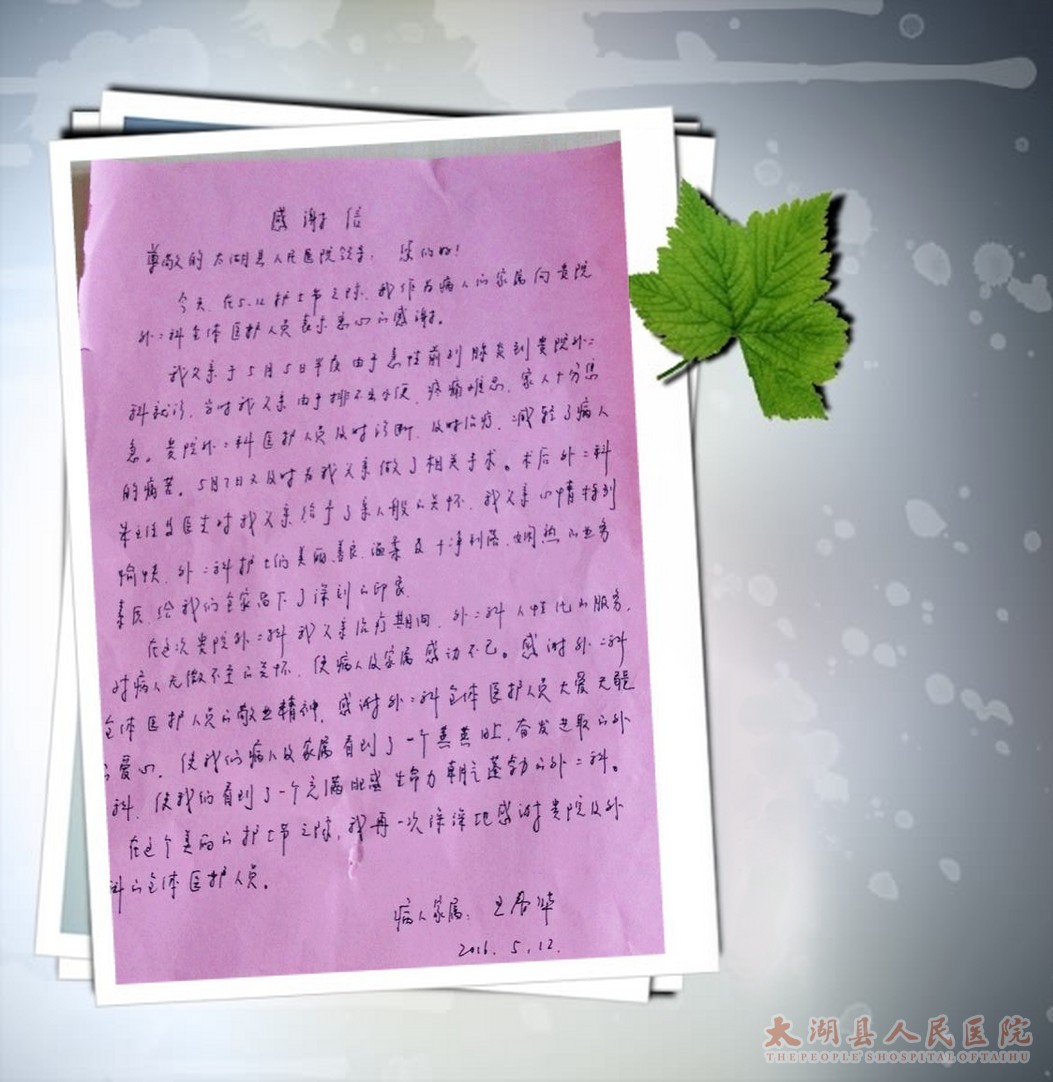 感谢信
尊敬的太湖县人民医院领导，您们好！
今天，在5.12护士节之际，我作为病人的家属向贵院
外二科全体医护人员表示衷心的感谢。
我父亲于5月5日半夜由于急性前列腺炎到贵院外二
科就诊，当时我父亲由于排不出小便，疼痛难忍，家人十分焦
急。贵院外二科医护人员及时诊断，及时治疗，减轻了病人
的痛苦。5月7日又及时为我父亲做了相关手术。术后外二科
主任及医生对我父亲给予了亲人般的关怀，我父亲心情特别
愉快，外二科护士们美丽、善良、温柔及干净利落、娴熟的业务
素质，给我们全家留下了深刻的印象。
在这次贵院外二科我父亲治疗期间，外二科人性化的服务，
对病人无微不至的关怀，使病人及家属感动不已。感谢外二科
全体医护人员的敬业精神，感谢外二科全体医护人员大爱无疆
的爱心，使我们病人及家属看到了一个蒸蒸日上，奋发进取的外
科，使我们看到了一个充满胆感生命力朝气蓬勃的外二科。
在这个美丽的护士节之际，我再一次深深地感谢贵院及外
科的全体医护人员。
病人家属：王春华
2016.5.12.
太湖县人民医院
THE PEOPLE'S HOSPITAL OF TAIHU